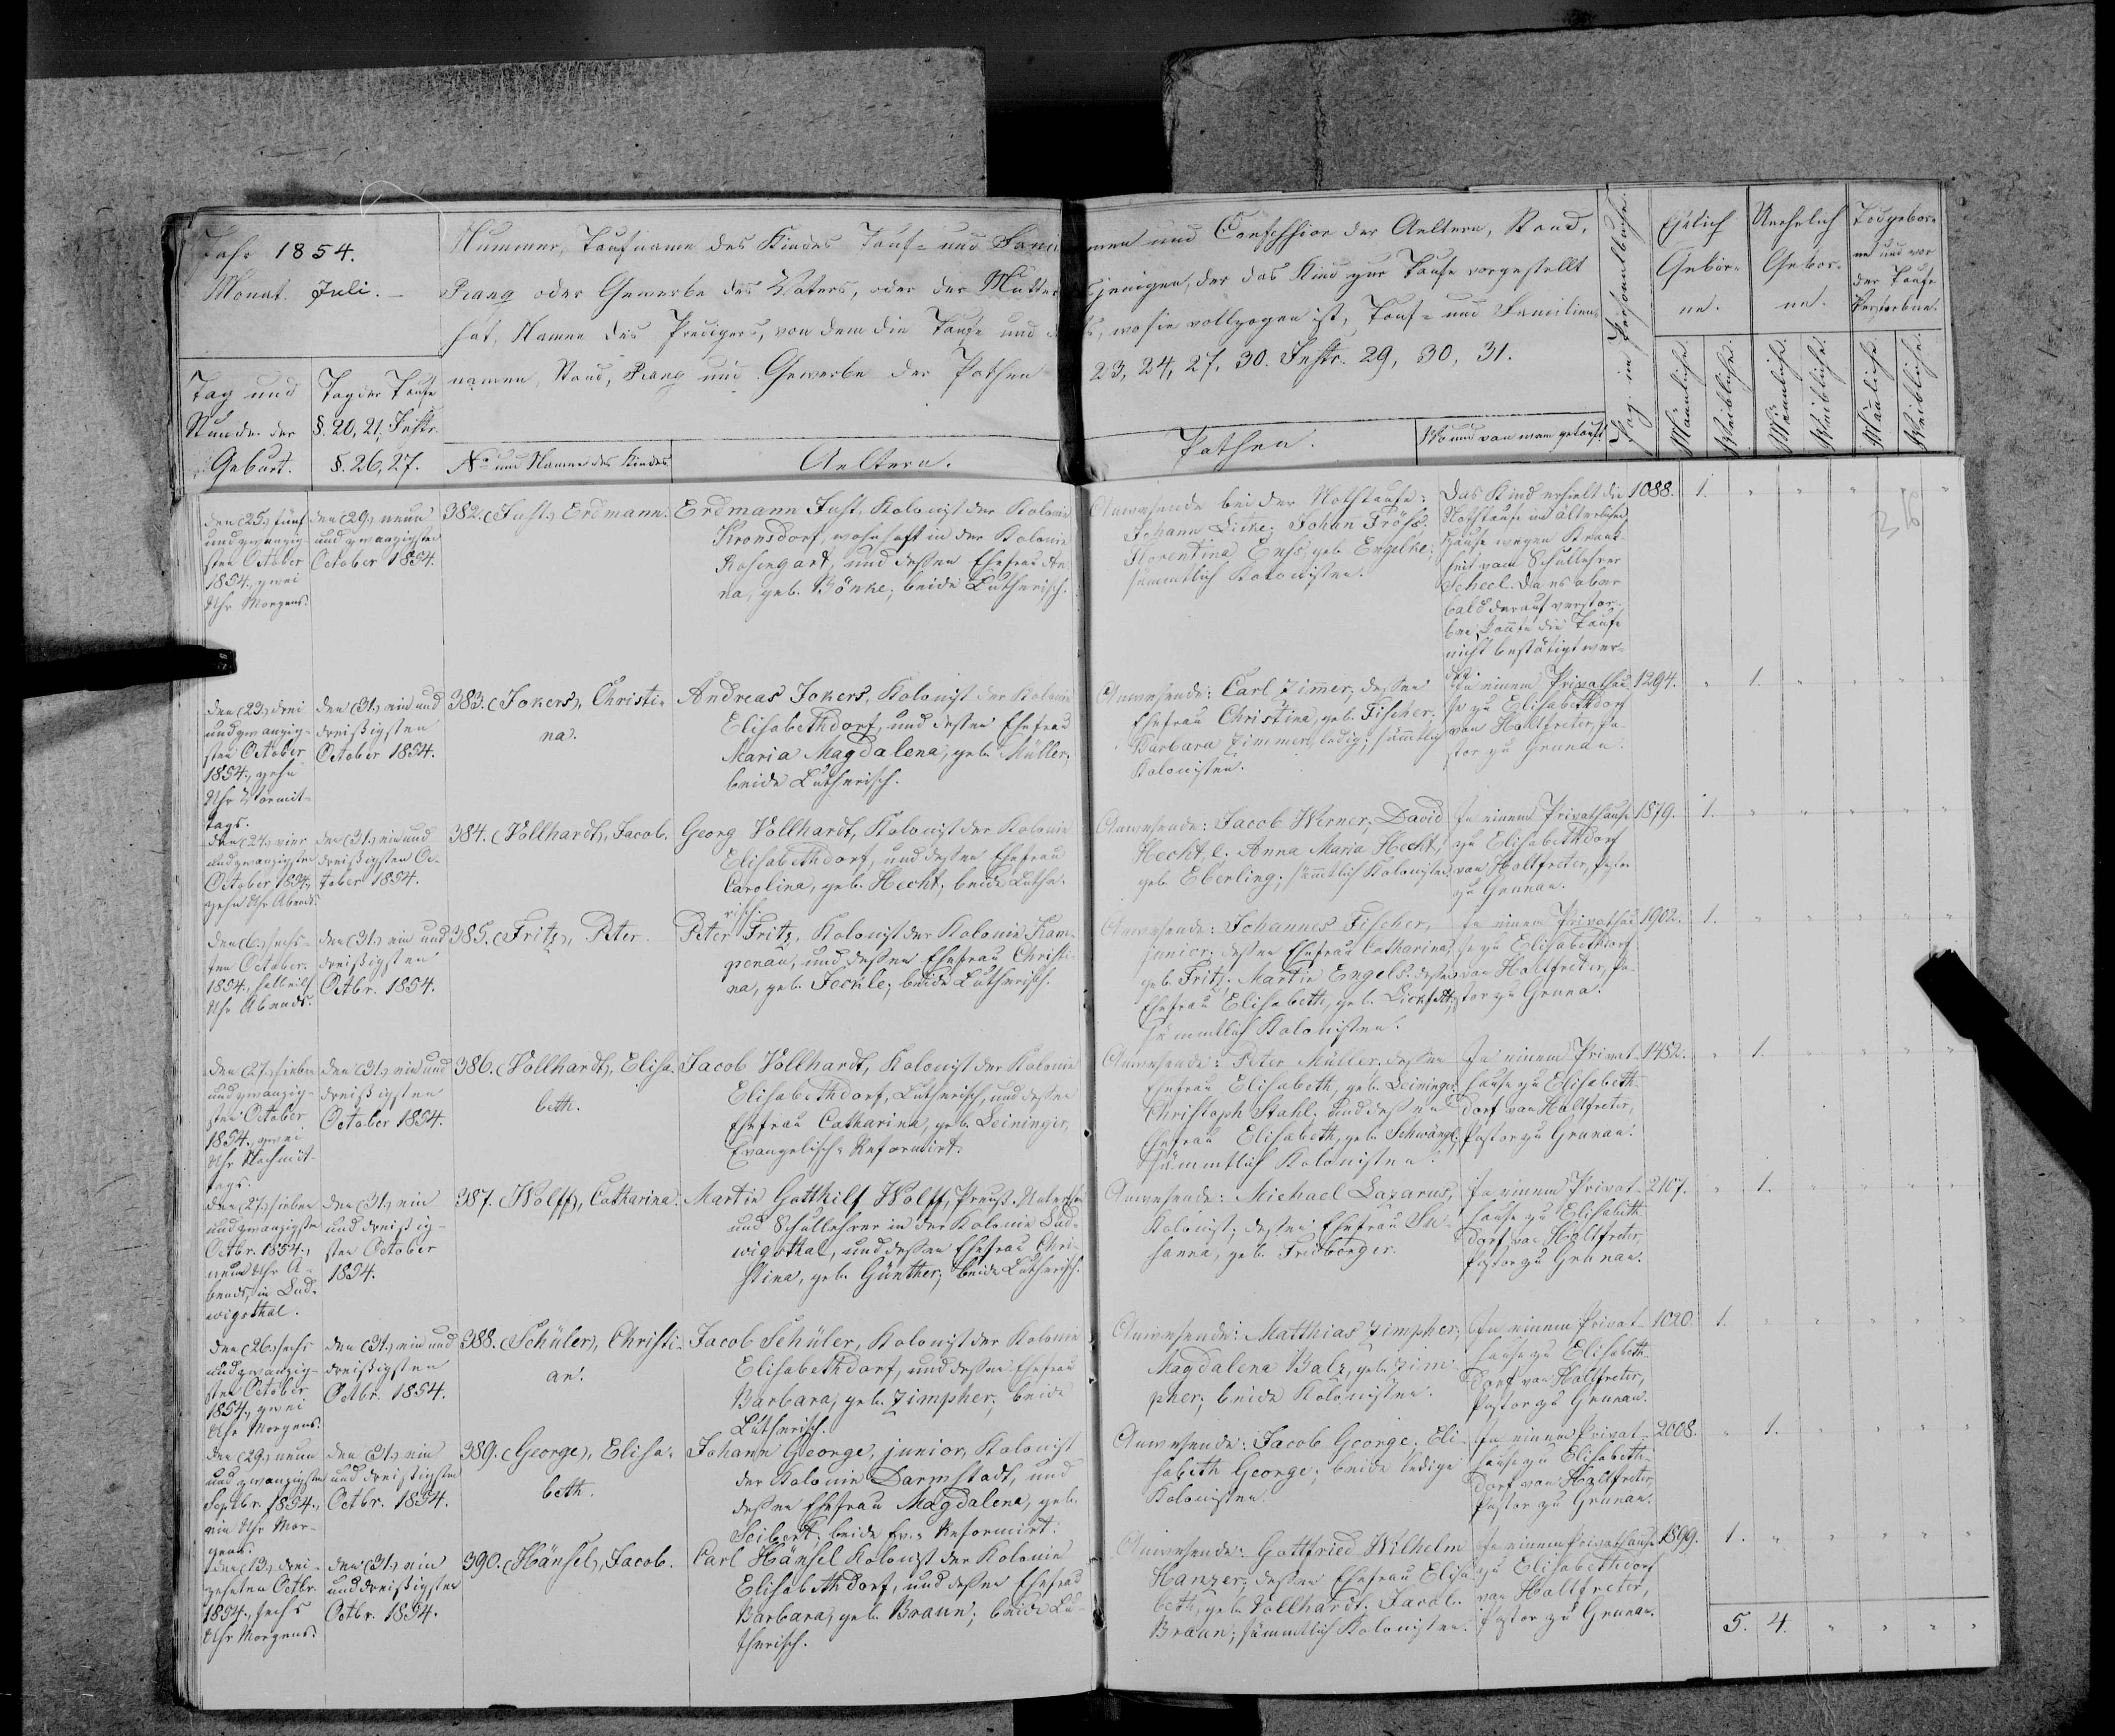 Jahr 1854.
Monat. Juli. –
Nummer, Taufname des Kindes Tauf- und
Rang oder Gewerbe des Vaters, oder der Mutter
hat, Namen des Predigers, von dem die Taufe und
namen, Stand, Rang und Gewerbe der Pathen
Tag und
Stunde der
Geburt.
Tag der Taufe
§. 20, 21. Instr.
§. 26, 27.
No und Name des Kindes
Aeltern.
men und Confession der Aeltern, Stand,
jenigen, der das Kind zur Taufe vorgestellt
wo sie vollzogen ist, Tauf- und Familien-
23, 24, 27, 30. Instr. 29, 30, 31.
Pathen.
Wo und von wem getauft
Pag. im Personalbuche.
Ehelich
Gebor-
ne.
Unehelich
Gebor-
ne.
Todgebor-
ne und vor
der Taufe
Verstorbene.
Männliche.
Weibliche.
Männliche.
Weibliche.
Männliche.
Weibliche.
den (25.) fünf
und zwanzig-
sten October
1854., zwei
Uhr Morgens.
den (29.) neun
und zwanzigsten
October 1854.
382. (Just.) Erdmann.
Erdmann Just, Kolonist der Kolonie
Kronsdorf, wohnhaft in der Kolonie
Rosengart, und dessen Ehefrau An-
na, geb. Bönke; beide Lutherisch.
Anwesende bei der Nothtaufe:
Johann Dicke; Johan Fröhs.
Florentina Enhs, geb. Engelke;
sämmtlich Kolonisten.
Das Kind erhielt die
Nothtaufe im älterlichen
Hause wegen Krank-
heit vom Schullehrer
Scheel. Da es aber
bald darauf verstor-
ben, konnte die Taufe
nicht bestätigt wer-
den.
1088.
1.
den (23.) drei
und zwanzig-
sten October
1854., zehn
Uhr Vormit-
tags.
den (31.) ein und
dreißigsten
October 1854.
383. (Jokers), Christi-
na.
Andreas Jokers, Kolonist der Kolonie
Elisabethdorf, und dessen Ehefrau
Maria Magdalena, geb. Müller,
beide Lutherisch.
Anwesende: Carl Zimer, dessen
Ehefrau Christina, geb. Fischer;
Barbara Zimmer, ledig; sämmtlich
Kolonisten.
In einem Privathau-
se zu Elisabethdorf
von Holtfreter, Pa-
stor zu Grunau.
1294.
1.
den (24.) vier
und zwanzigsten
October 1854.,
zehn Uhr Abends.
den (31.) ein und
dreißigsten Oc-
tober 1854.
384. (Vollhardt), Jacob.
Georg Vollhardt, Kolonist der Kolonie
Elisabethdorf, und dessen Ehefrau
Carolina, geb. Hecht; beide Luthe-
risch.
Anwesende: Jacob Werner; David
Hecht, l. Anna Maria Hecht,
geb. Eberling; sämmtlich Kolonisten
In einem Privathause
zu Elisabethdorf
von Holtfreter, Pastor
zu Grunau.
1879.
1.
den (6.) sechs-
ten October.
1854., halb eilf
Uhr Abends.
den (31.) ein und
dreißigsten
Octbr. 1854.
385. (Fritz), Peter.
Peter Fritz, Kolonist der Kolonie Kam-
penau, und dessen Ehefrau Christi-
na, geb. Jeckle; beide Lutherisch.
Anwesende: Johannes Fischer,
junior, dessen Ehefrau Catharina,
geb. Fritz; Martin Engels. dessen
Ehefrau Elisabeth, geb. Dickhütt;
sämmtlich Kolonisten.
In einem Privathau-
se zu Elisabethdorf
von Holtfreter, Pa-
stor zu Gruna.
1902.
1.
den (27.) sieben
und zwanzig-
sten October
1854., zwei
Uhr Nachmit-
tags.
den (31.) ein und
dreißigsten
October 1854.
386. (Vollhardt), Elisa-
beth.
Jacob Vollhardt, Kolonist der Kolonie
Elisabethdorf, Lutherisch, und dessen
Ehefrau Catharina, geb. Leininger,
Evangelisch-Reformirt.
Anwesende: Peter Müller. dessen
Ehefrau Elisabeth, geb. Leininger
Christoph Stahl. und dessen
Ehefrau Elisabeth, geb. Schwängl.
sämmtlich Kolonisten.
In einem Privat-
hause zu Elisabeth-
dorf von Holtfreter,
Pastor zu Grunau.
1452.
1.
den (27.) sieben
und zwanzigsten
Octbr. 1854.,
neun Uhr A-
bends, in Lud-
wigsthal.
den (31.) ein
und dreißig-
sten October
1854.
387. (Wolff), Catharina.
Martin Gotthilf Wolff, Preuß. Unterthan
und Schullehrer in der Kolonie Lud-
wigsthal, und dessen Ehefrau Chri-
stina, geb. Günther; beide Lutherisch.
Anwesende: Michael Lazarus,
Kolonist; dessen Ehefrau Su-
sanna, geb. Fredberger.
In einem Privat-
hause zu Elisabeth-
dorf von Holtfreter,
Pastor zu Grunau.
2107.
1.
den (26.) sechs
und zwanzig-
sten October
1854., zwei
Uhr Morgens.
den (31.) ein und
dreißigsten
Octbr. 1854.
388. (Schüler), Christi-
an.
Jacob Schüler, Kolonist der Kolonie
Elisabethdorf, und dessen Ehefrau
Barbara, geb. Zimpher; beide
Lutherisch.
Anwesende: Matthias Zimpher;
Magdalena Balz, geb. Zim-
pher; beide Kolonisten.
In einem Privat-
hause zu Elisabeth-
dorf von Holtfreter,
Pastor zu Grunau.
1020.
1.
den (29.) neun
und zwanzigsten
Septbr. 1854.,
ein Uhr Mor-
gens.
den (31.) ein
und dreißigsten
Octbr. 1854.
389. (George), Elisa-
beth.
Johann George, junior, Kolonist
der Kolonie Darmstadt, und
dessen Ehefrau Magdalena, geb.
Seibert; beide Ev.-Reformirt.
Anwesende: Jacob George; Eli-
sabeth George; beide ledige
Kolonisten.
In einem Privat-
hause zu Elisabeth-
dorf von Holtfreter,
Pastor zu Grunau.
2008.
1.
den (13.) drei-
zehnten Octbr.
1854., sechs
Uhr Morgens.
den (31.) ein
und dreißigsten
Octbr. 1854.
390. (Hänsel), Jacob.
Carl Hänsel Kolonist der Kolonie
Elisabethdorf, und dessen Ehefrau
Barbara, geb. Braun; beide Lu-
therisch.
Anwesende: Gottfried Wilhelm
Hanzer; dessen Ehefrau Elisa-
beth, geb. Vollhardt. Jacob.
Braun; sämmtlich Kolonisten.
In einem Privathause
zu Elisabethdorf
von Holtfreter,
Pastor zu Grunau.
1899.
1.
5. 4.